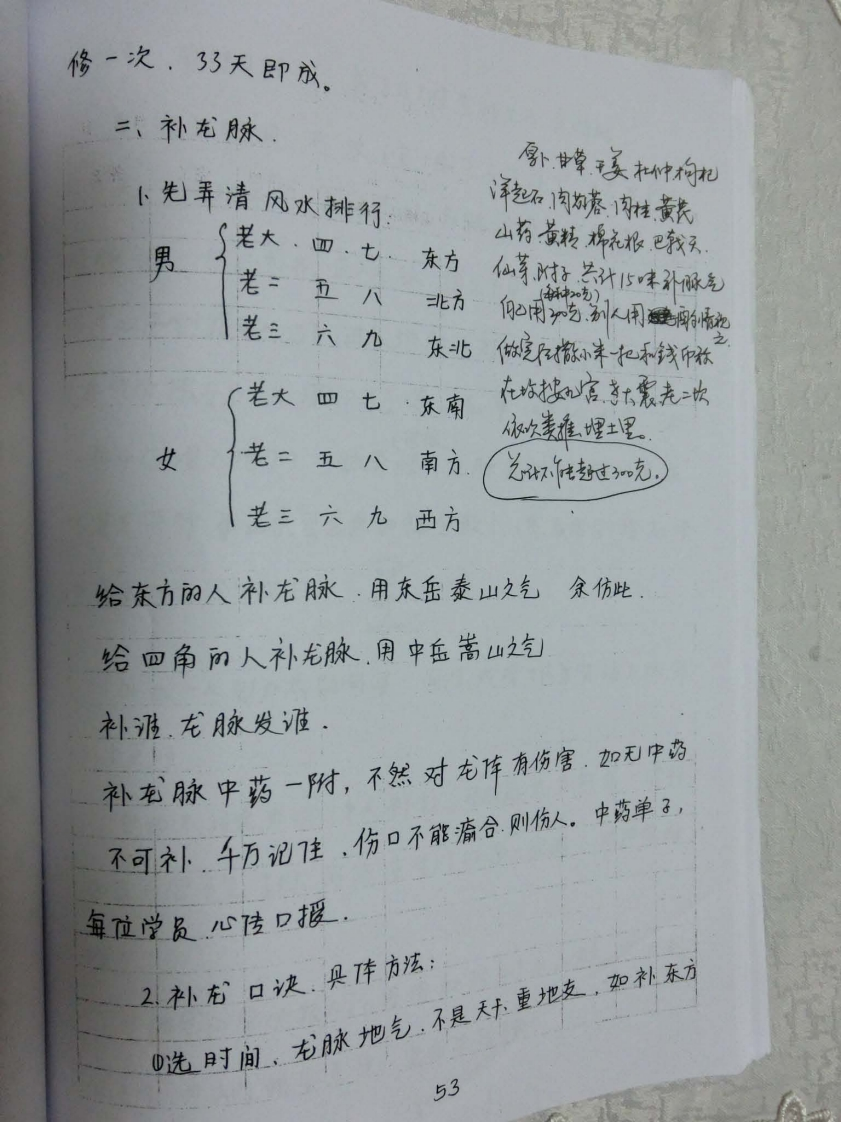 修一次、33天即成。
二、补龙脉.
1、先弄清风水排行:
男
老大、四、七、东方
老二 五 八 北方
老三 六 九 东北
女
老大 四 七 东南
老二 五 八 南方.
老三 六 九 西方
厚卜、甘草、干姜 杜仲 枸杞
洋起石、肉苁蓉、肉桂、黄芪
山药、黄精、棉花根、巴戟天、
仙茅、附子、共计15味补脉气
(每种20克)
自己用300克、别人用酌情视
之
做完后撒小米一把和钱币
在坟按九宫、老大震老二坎
依次类推、埋土里。
总计不能超过300克。
给东方的人补龙脉、用东岳泰山之气 余仿此.
给四角的人补龙脉、用中岳嵩山之气
补谁、龙脉发谁.
补龙脉中药一附, 不然对龙阵有伤害、如无中药
不可补、千万记住、伤口不能瘉合、则伤人。中药单子,
每位学员、心传口授.
2、补龙口诀、具体方法:
①选时间、龙脉地气、不是天干、重地支、如补东方
53